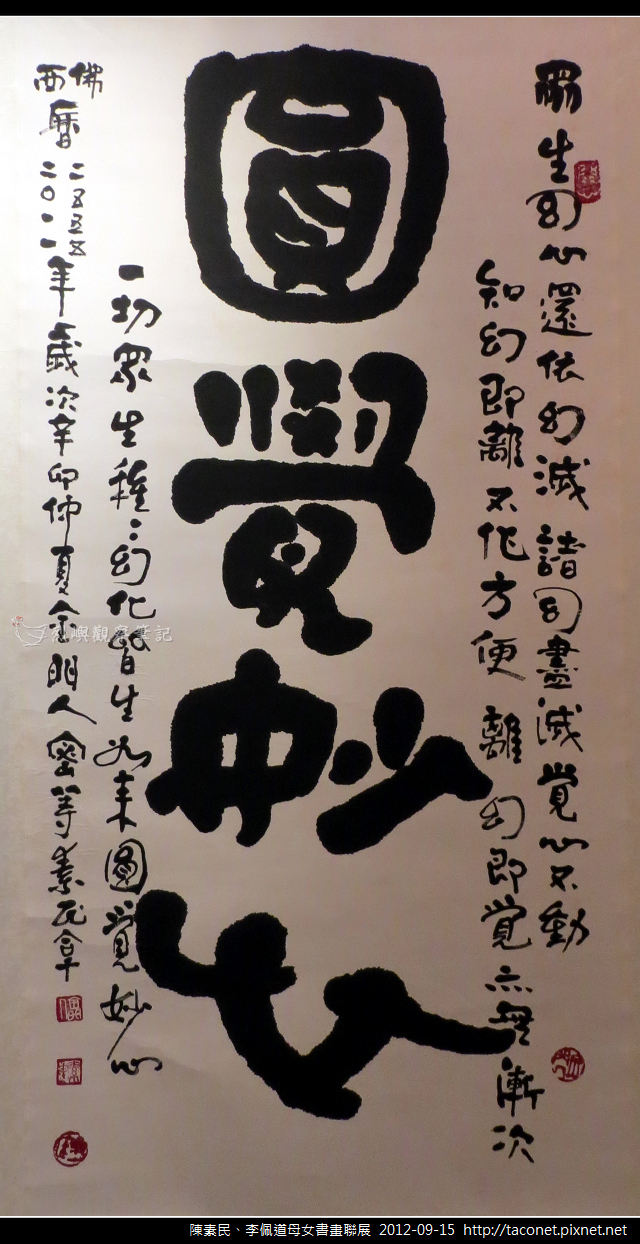 眾生幻心還依幻滅 諸幻盡滅覺心不動
知幻即離不作方便 離幻即覺亦無漸次
圓覺妙心
一切眾生種種幻化皆生如來圓覺妙心
佛西曆二五五五二〇一一年歲次辛卯仲夏金門人密等素民合十
烈嶼觀察筆記
陳素民、李佩道母女書畫聯展 2012-09-15 http://taconet.pixnet.net